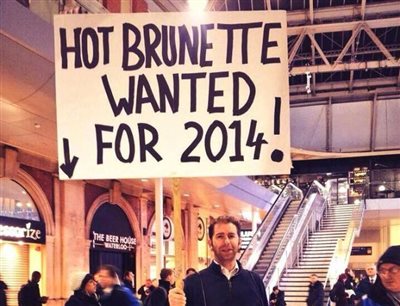 HOT BRUNETTE
WANTED
↓ FOR 2014!
accessorize
THE BEER HOUSE
WATERLOO